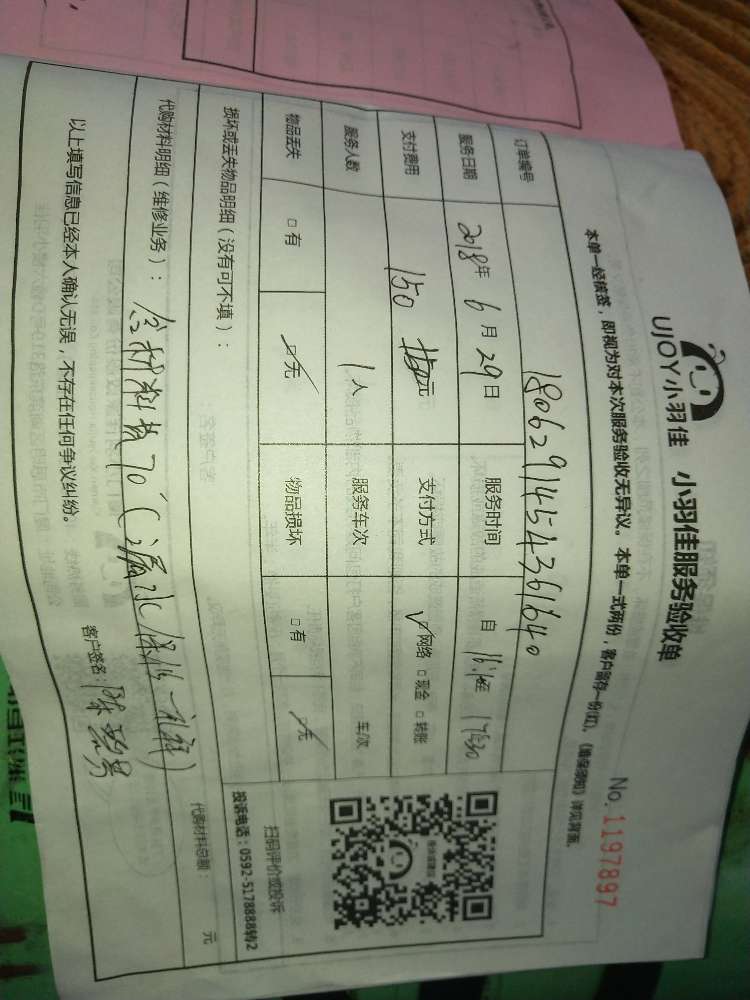 UJOY小羽佳 小羽佳服务验收单
No.1197897
本单一经核签，即视为对本次服务验收无异议。本单一式两份，客户留存一份(红)，《维保须知》详见背面。
订单编号 180629145436164０
服务日期 2018年 6月 29日 服务时间 自 至 1730
支付费用 150 元 支付方式 ☑网络 □现金 □转账
服务人数 1人 服务车次 车/次
物品丢失 □有 ☑无 物品损坏 □有 ☑无
扫码评价或投诉
投诉电话：0592-5178888转2
损坏或丢失物品明细（没有可不填）：
代购材料明细（维修业务）： 含材料费70（漏水保修一礼拜） 代购材料总额： 元
以上填写信息已经本人确认无误，不存在任何争议纠纷。 客户签名：陈